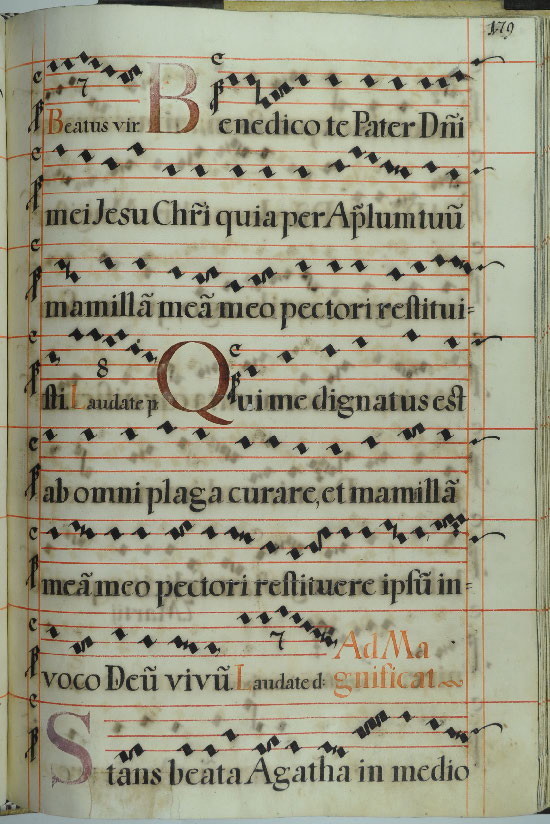 179
7
Beatus vir. Benedico te Pater Dñi
mei Jesu Chr̃i quia per Ap̃lum tuũ
mamillã meã meo pectori restitui-
8
sti. Laudate p̃. Qui me dignatus est
ab omni plaga curare, et mamillã
meã meo pectori restituere ipsũ in-
7 Ad Ma
voco Deũ vivũ. Laudate d. gnificat.
Stans beata Agatha in medio